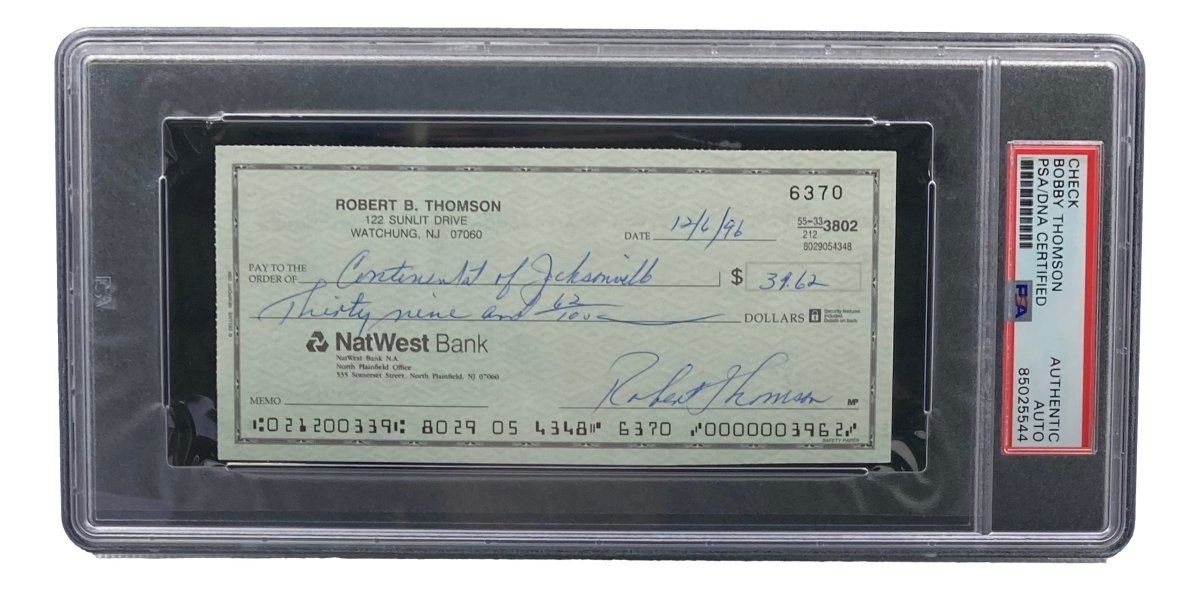 6370
ROBERT B. THOMSON
122 SUNLIT DRIVE
WATCHUNG, NJ 07060
DATE 12/6/96
55-33 3802
212
8029054348
PAY TO THE
ORDER OF Continental of Jacksonville $ 39.62
Thirty nine and 62/100 DOLLARS
Security features
included.
Details on back.
NatWest Bank
NatWest Bank N.A.
North Plainfield Office
535 Somerset Street, North Plainfield, NJ 07060
MEMO
Robert Thomson MP
⑆021200339⑆ 8029 05 4348⑈ 6370 ⑈0000003962⑈
SAFETY PAPER
CHECK
BOBBY THOMSON
PSA/DNA CERTIFIED
PSA
AUTHENTIC
AUTO
85025544